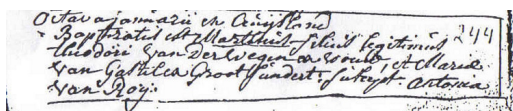 Octava januarii ex Cuijsland
Baptizatus est Martinus filius legitimus 244
theodori Van Der Wegen a woude et Maria
Van Gastel ex Groot Sundert. Suscept. Antonia
Van Roij.